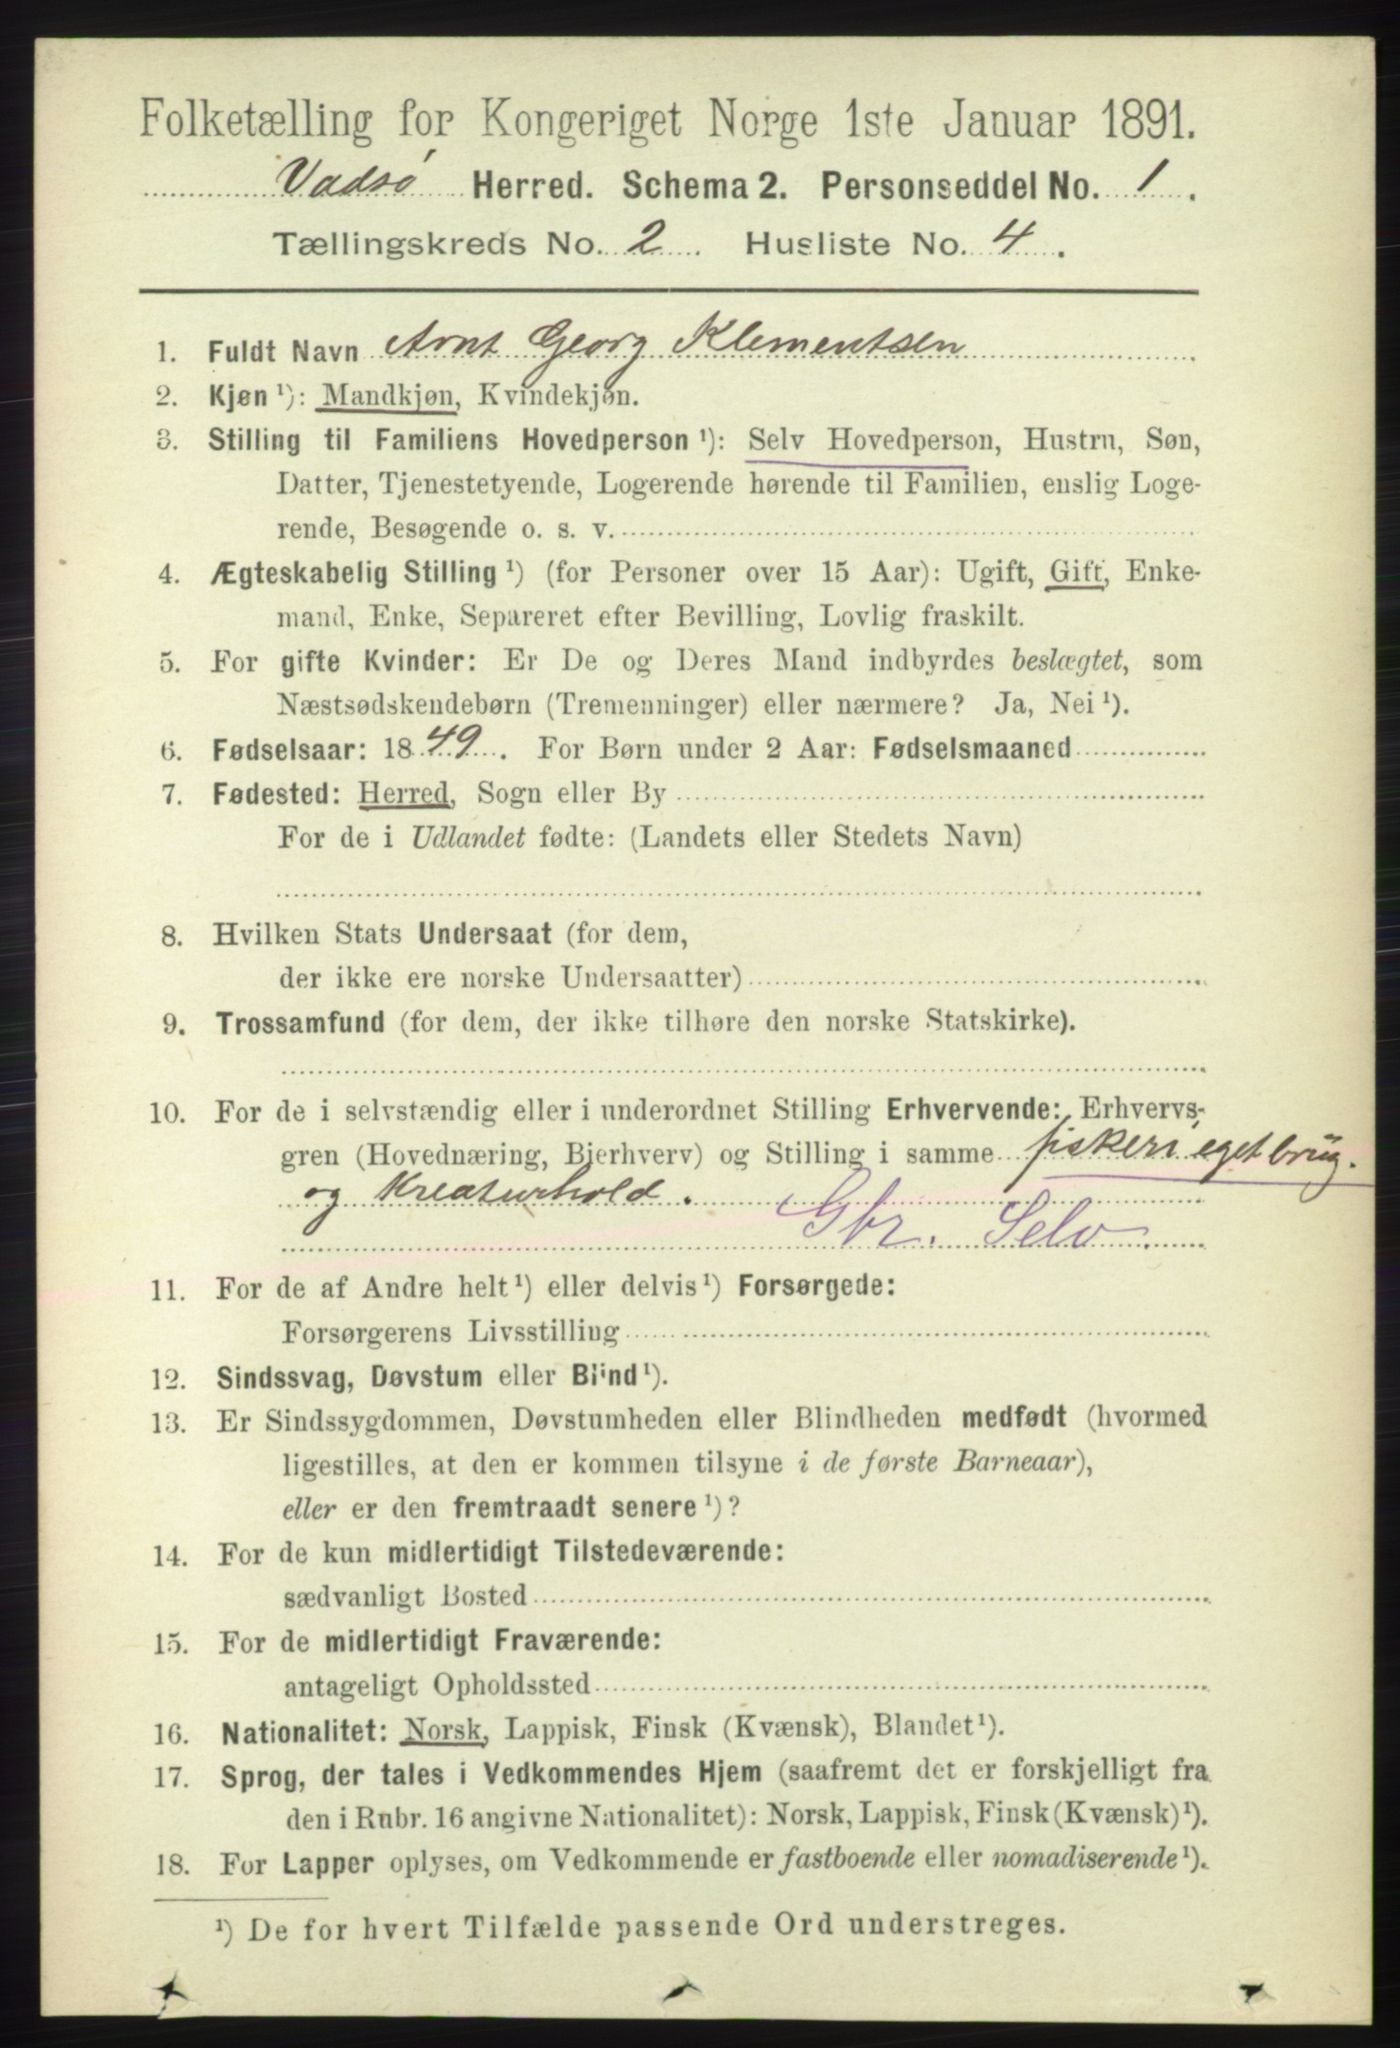 Folketælling for Kongeriget Norge 1ste Januar 1891.
Vadsö Herred. Schema 2. Personseddel No. 1.
Tællingskreds No. 2. Husliste No. 4.
1. Fuldt Navn Arnt Georg Klementsen
2. Kjøn ¹): Mandkjøn, Kvindekjøn.
3. Stilling til Familiens Hovedperson ¹): Selv Hovedperson, Hustru, Søn,
Datter, Tjenestetyende, Logerende hørende til Familien, enslig Loge-
rende, Besøgende o. s. v.
4. Ægteskabelig Stilling ¹) (for Personer over 15 Aar): Ugift, Gift, Enke-
mand, Enke, Separeret efter Bevilling, Lovlig fraskilt.
5. For gifte Kvinder: Er De og Deres Mand indbyrdes beslægtet, som
Næstsødskendebørn (Tremenninger) eller nærmere? Ja, Nei ¹).
6. Fødselsaar: 1849. For Børn under 2 Aar: Fødselsmaaned
7. Fødested: Herred, Sogn eller By
For de i Udlandet fødte: (Landets eller Stedets Navn)
8. Hvilken Stats Undersaat (for dem,
der ikke ere norske Undersaatter)
9. Trossamfund (for dem, der ikke tilhøre den norske Statskirke).
10. For de i selvstændig eller i underordnet Stilling Erhvervende: Erhvervs-
gren (Hovednæring, Bierhverv) og Stilling i samme fiskeri, eget brug.
og Kreaturhold.
Gbr. Selv.
11. For de af Andre helt ¹) eller delvis ¹) Forsørgede:
Forsørgerens Livsstilling
12. Sindssvag, Døvstum eller Blind ¹).
13. Er Sindssygdommen, Døvstumheden eller Blindheden medfødt (hvormed
ligestilles, at den er kommen tilsyne i de første Barneaar),
eller er den fremtraadt senere ¹)?
14. For de kun midlertidigt Tilstedeværende:
sædvanligt Bosted
15. For de midlertidigt Fraværende:
antageligt Opholdssted
16. Nationalitet: Norsk, Lappisk, Finsk (Kvænsk), Blandet ¹).
17. Sprog, der tales i Vedkommendes Hjem (saafremt det er forskjelligt fra
den i Rubr. 16 angivne Nationalitet): Norsk, Lappisk, Finsk (Kvænsk) ¹).
18. For Lapper oplyses, om Vedkommende er fastboende eller nomadiserende ¹).
¹) De for hvert Tilfælde passende Ord understreges.